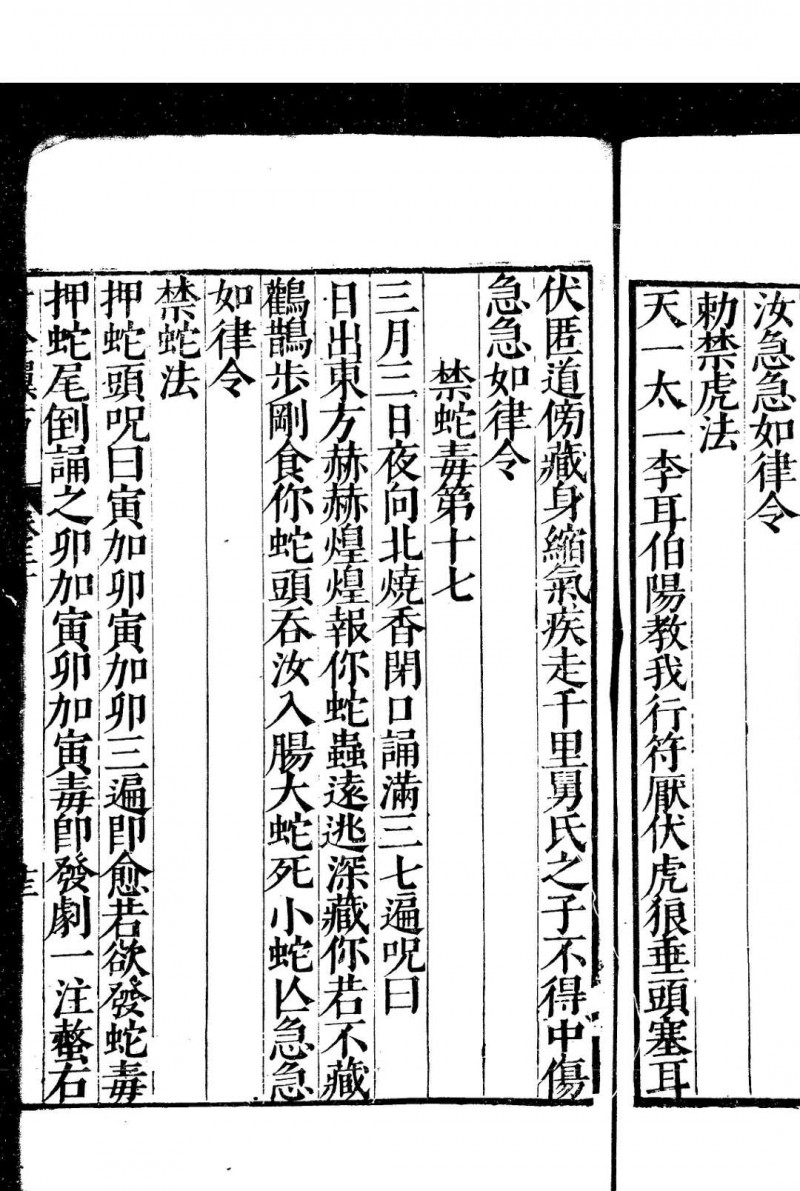 汝急急如律令
勑禁虎法
天一太一李耳伯陽教我行符厭伏虎狼垂頭塞耳
伏匿道傍藏身縮氣疾走千里舅氏之子不得中傷
急急如律令
禁蛇毒第十七
三月三日夜向北燒香閉口誦滿三七遍呪曰
日出東方赫赫煌煌報你蛇蟲遠逃深藏你若不藏
鸛鵲步剛食你蛇頭吞汝入腸大蛇死小蛇亾急急
如律令
禁蛇法
押蛇頭呪曰寅加卯寅加卯三遍即愈若欲發蛇毒
押蛇尾倒誦之卯加寅卯加寅毒即發劇一注螫右